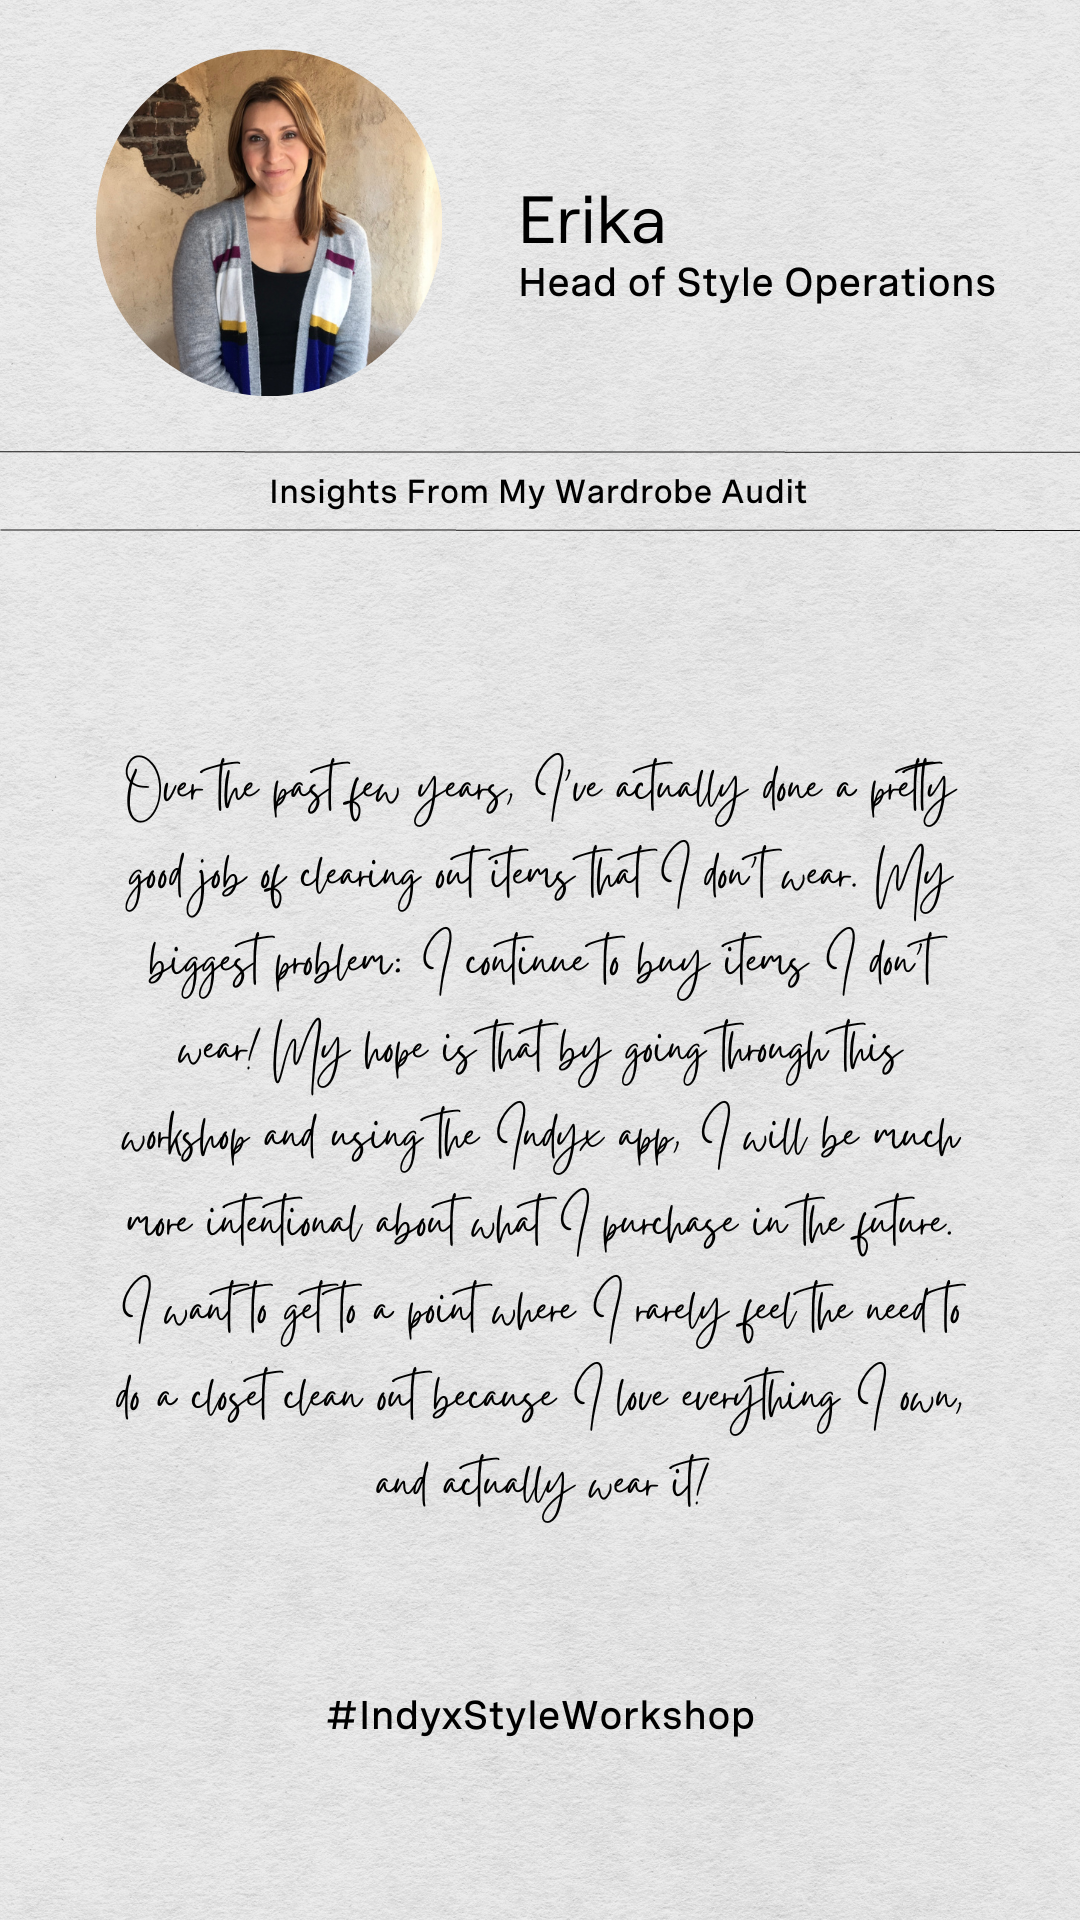 Erika
Head of Style Operations
Insights From My Wardrobe Audit
Over the past few years, I've actually done a pretty
good job of clearing out items that I don't wear. My
biggest problem: I continue to buy items I don't
wear! My hope is that by going through this
workshop and using the Indyx app, I will be much
more intentional about what I purchase in the future.
I want to get to a point where I rarely feel the need to
do a closet clean out because I love everything I own,
and actually wear it!
#IndyxStyleWorkshop